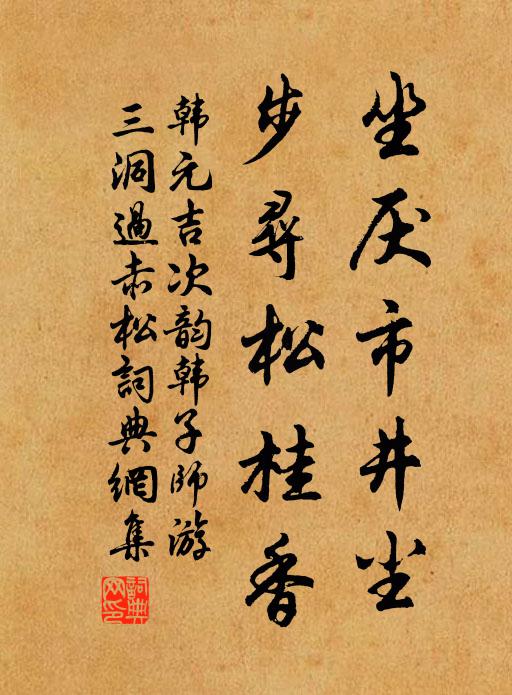 坐厌市井尘
步寻松桂香
韩元吉次韵韩子师游
三洞過赤松詞典網集
詞典網印